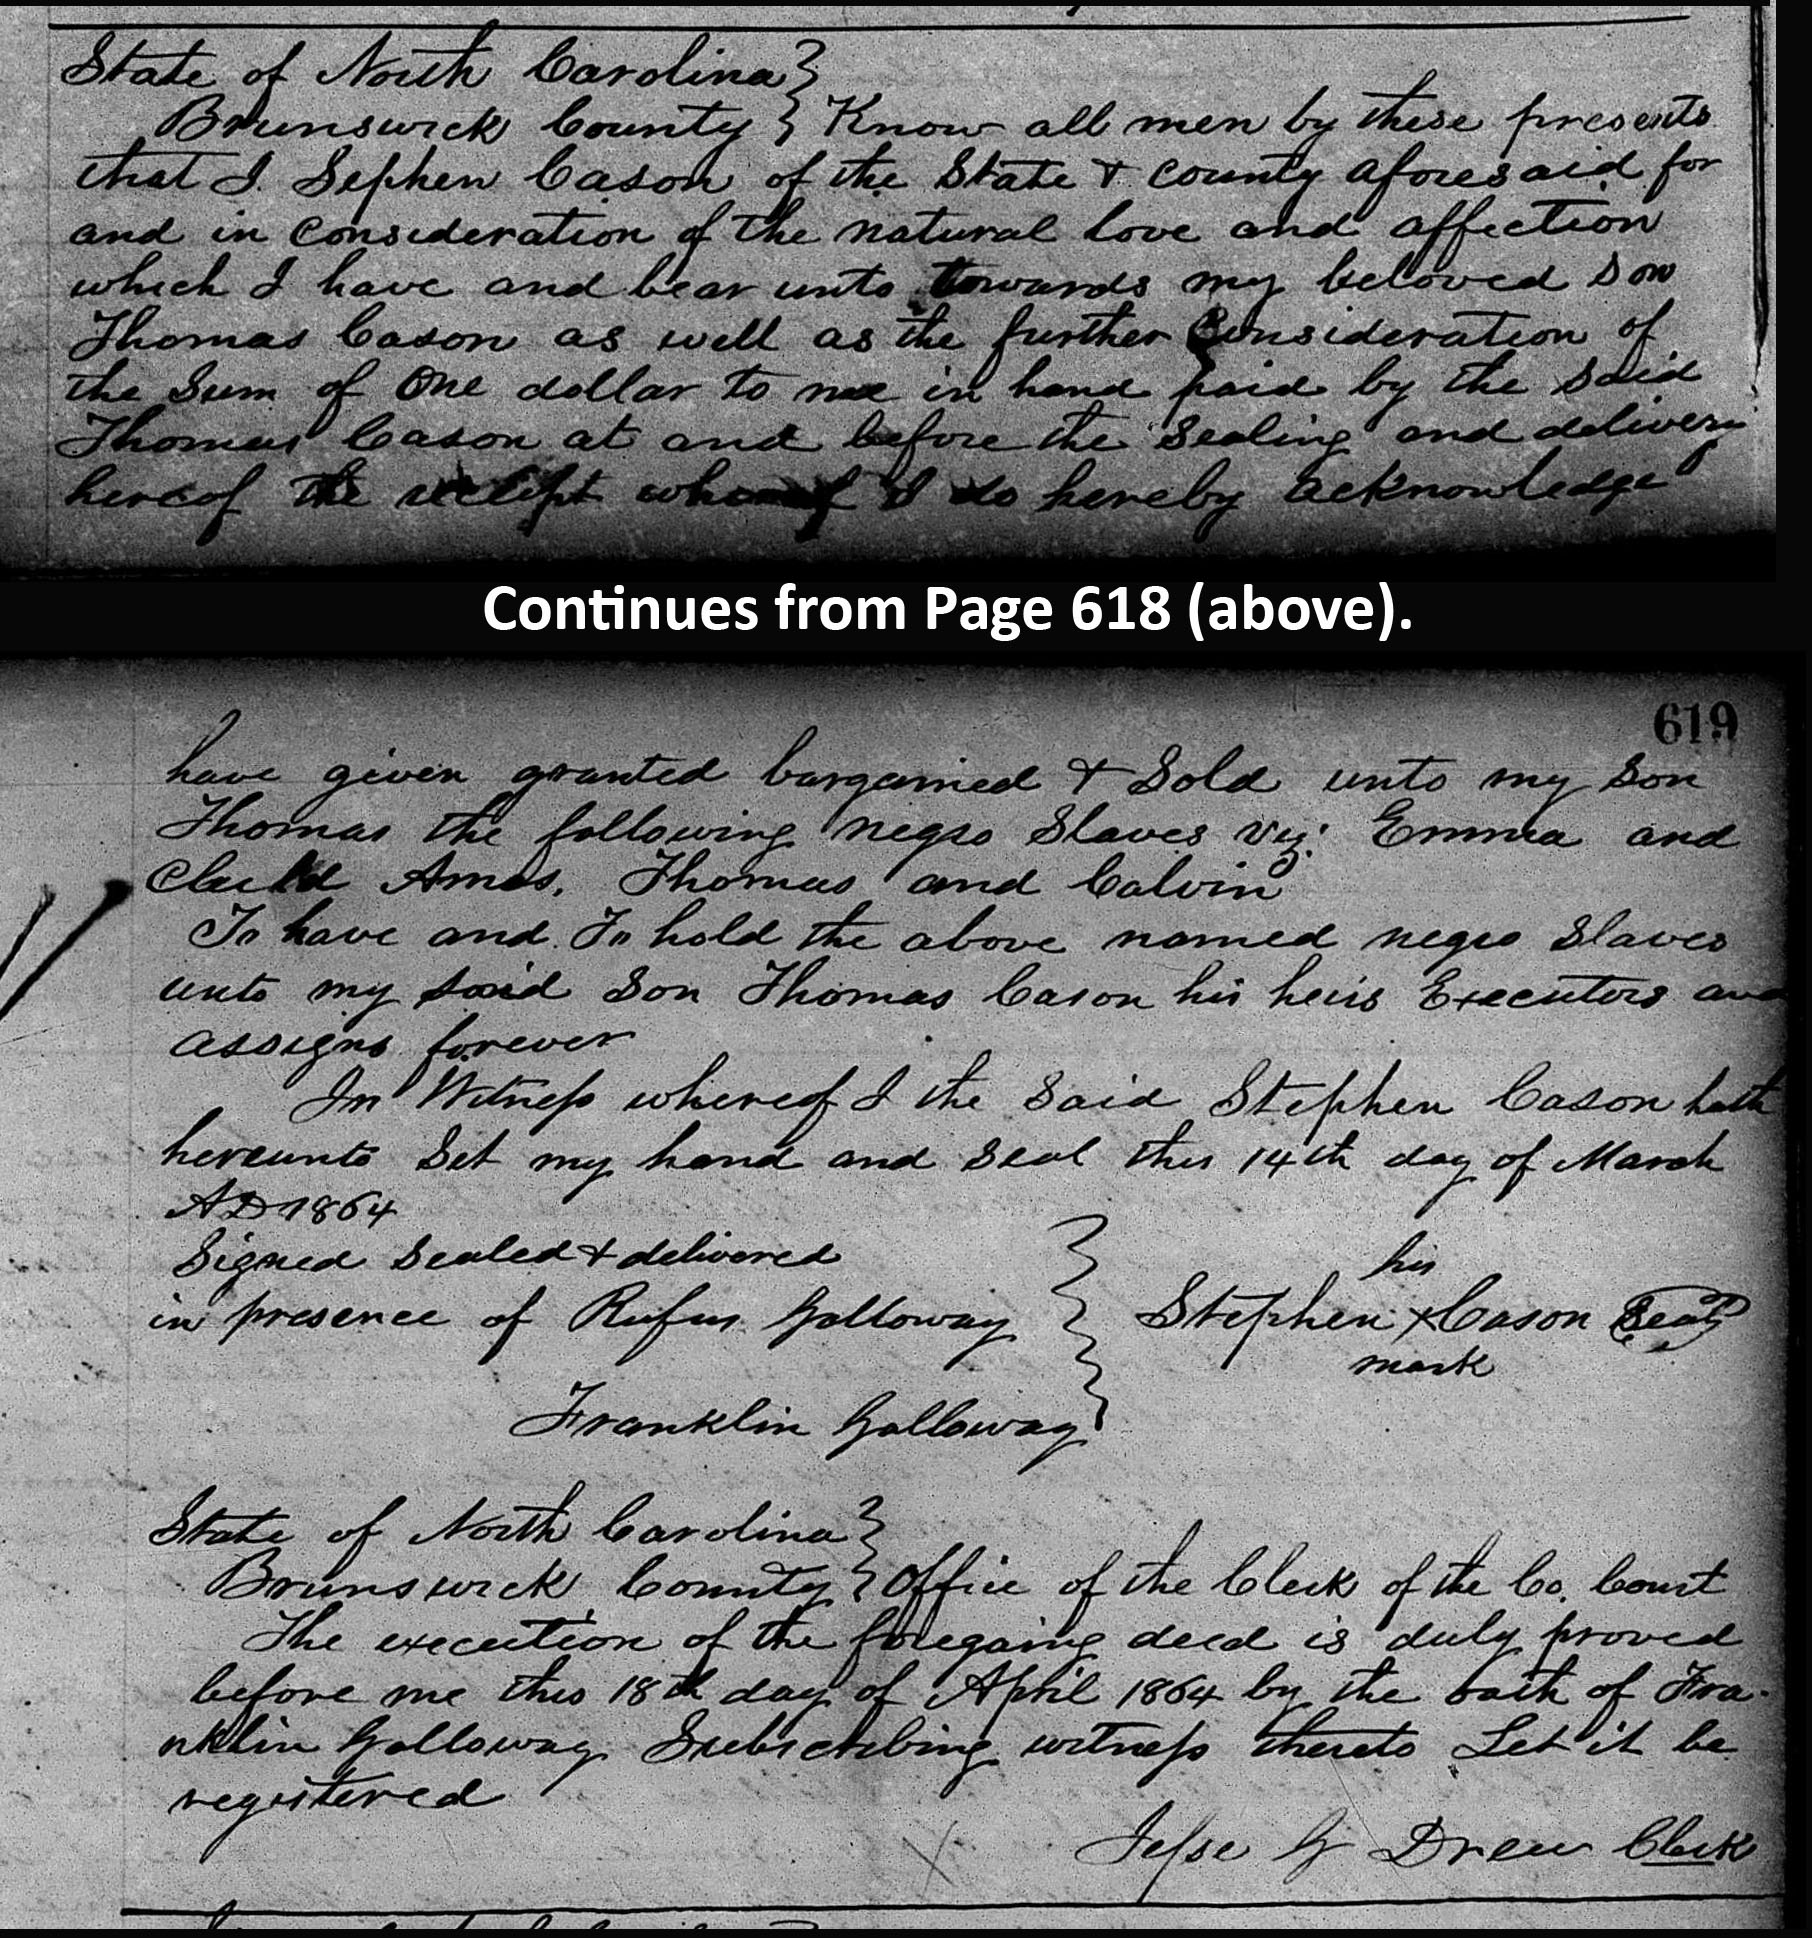 State of North Carolina }
Brunswick County } Know all men by these presents
that I. Sephen Cason of the State & county aforesaid for
and in consideration of the natural love and affection
which I have and bear unto towards my beloved son
Thomas Cason as well as the further Consideration of
the Sum of One dollar to me in hand paid by the said
Thomas Cason at and before the Sealing and delivery
hereof the receipt whereof I do hereby acknowledge
Continues from Page 618 (above).
619
have given granted bargained & Sold unto my Son
Thomas the following negro Slaves viz: Emma and
Child Amos. Thomas and Calvin
To have and To hold the above named negro Slaves
unto my said Son Thomas Cason his heirs Executors and
assigns forever
In Witness whereof I the Said Stephen Cason hath
hereunto Set my hand and seal this 14th day of March
AD 1864
Signed Sealed & delivered
in presence of Rufus Galloway
his
Stephen X Cason Seal
mark
Franklin Galloway
State of North Carolina }
Brunswick County } Office of the Clerk of the Co. Court
The execution of the foregoing deed is duly proved
before me this 18th day of April 1864 by the oath of Fra-
nklin Galloway Subscribing witness thereto Let it be
registered
Jesse G Drew Clerk